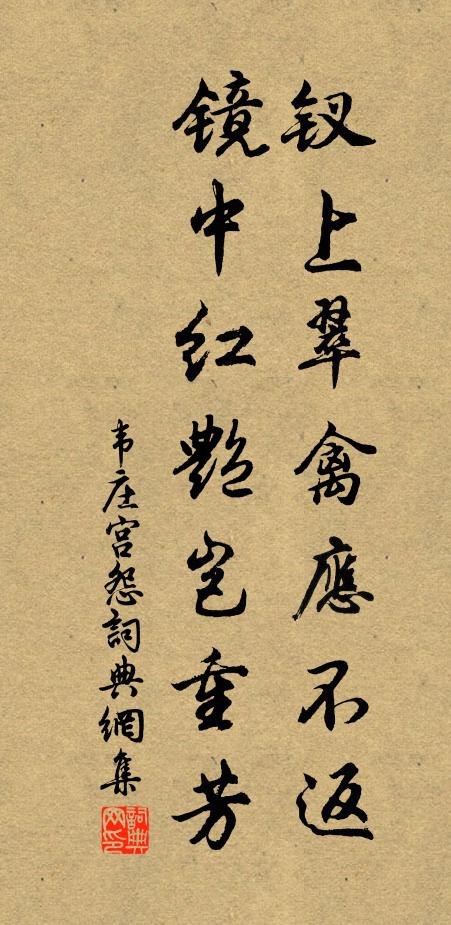 钗上翠禽應不返
镜中红艷岂重芳
韦庄宫怨詞典網集
詞典网印